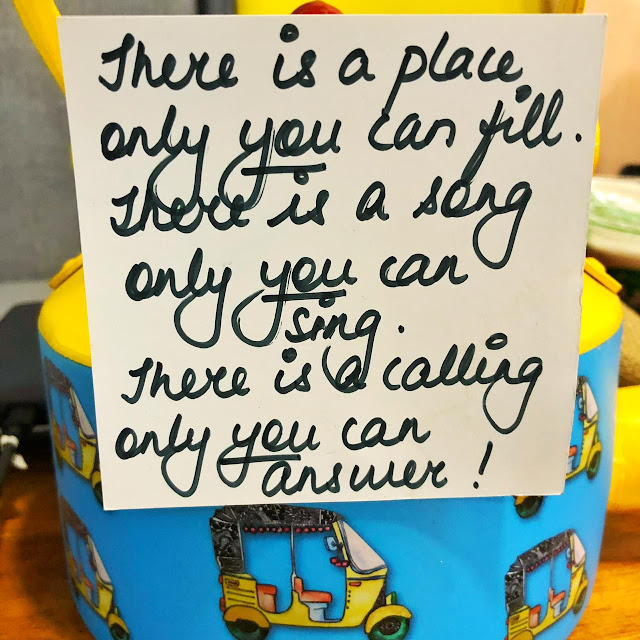 There is a place
only you can fill.
There is a song
only you can
sing.
There is a calling
only you can
answer!